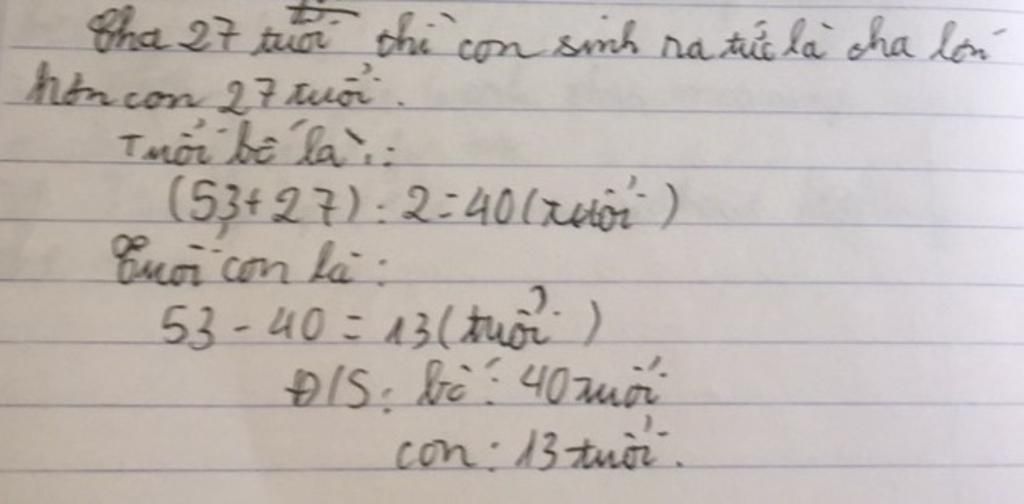 Cha 27 tuổi thì con sinh ra tức là cha lớn
hơn con 27 tuổi.
Tuổi bố là:
(53+27) : 2 = 40 (tuổi)
Tuổi con là:
53 - 40 = 13 (tuổi)
Đ/S: bố: 40 tuổi
con: 13 tuổi.